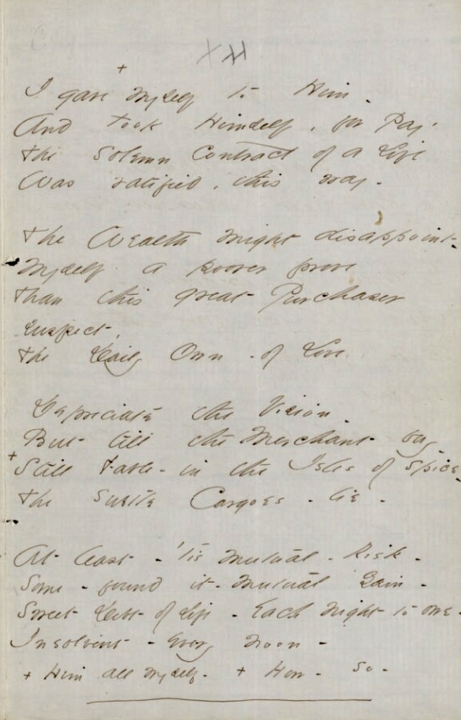 +
I gave Myself to Him -
And took Himself, for Pay -
The Solemn Contract of a Life
Was ratified, this way -
The Wealth might disappoint -
Myself a poorer prove
Than this great Purchaser
suspect,
The Daily Own - of Love
Depreciate the Vision -
But till the Merchant buy -
+ Still Fable - in the Isles of Spice -
The subtle Cargoes - lie -
At least - 'tis Mutual - Risk -
Some - found it - Mutual Gain -
Sweet Debt of Life - Each Night to owe -
Insolvent - Every Noon -
+ Him all myself - + How - so -